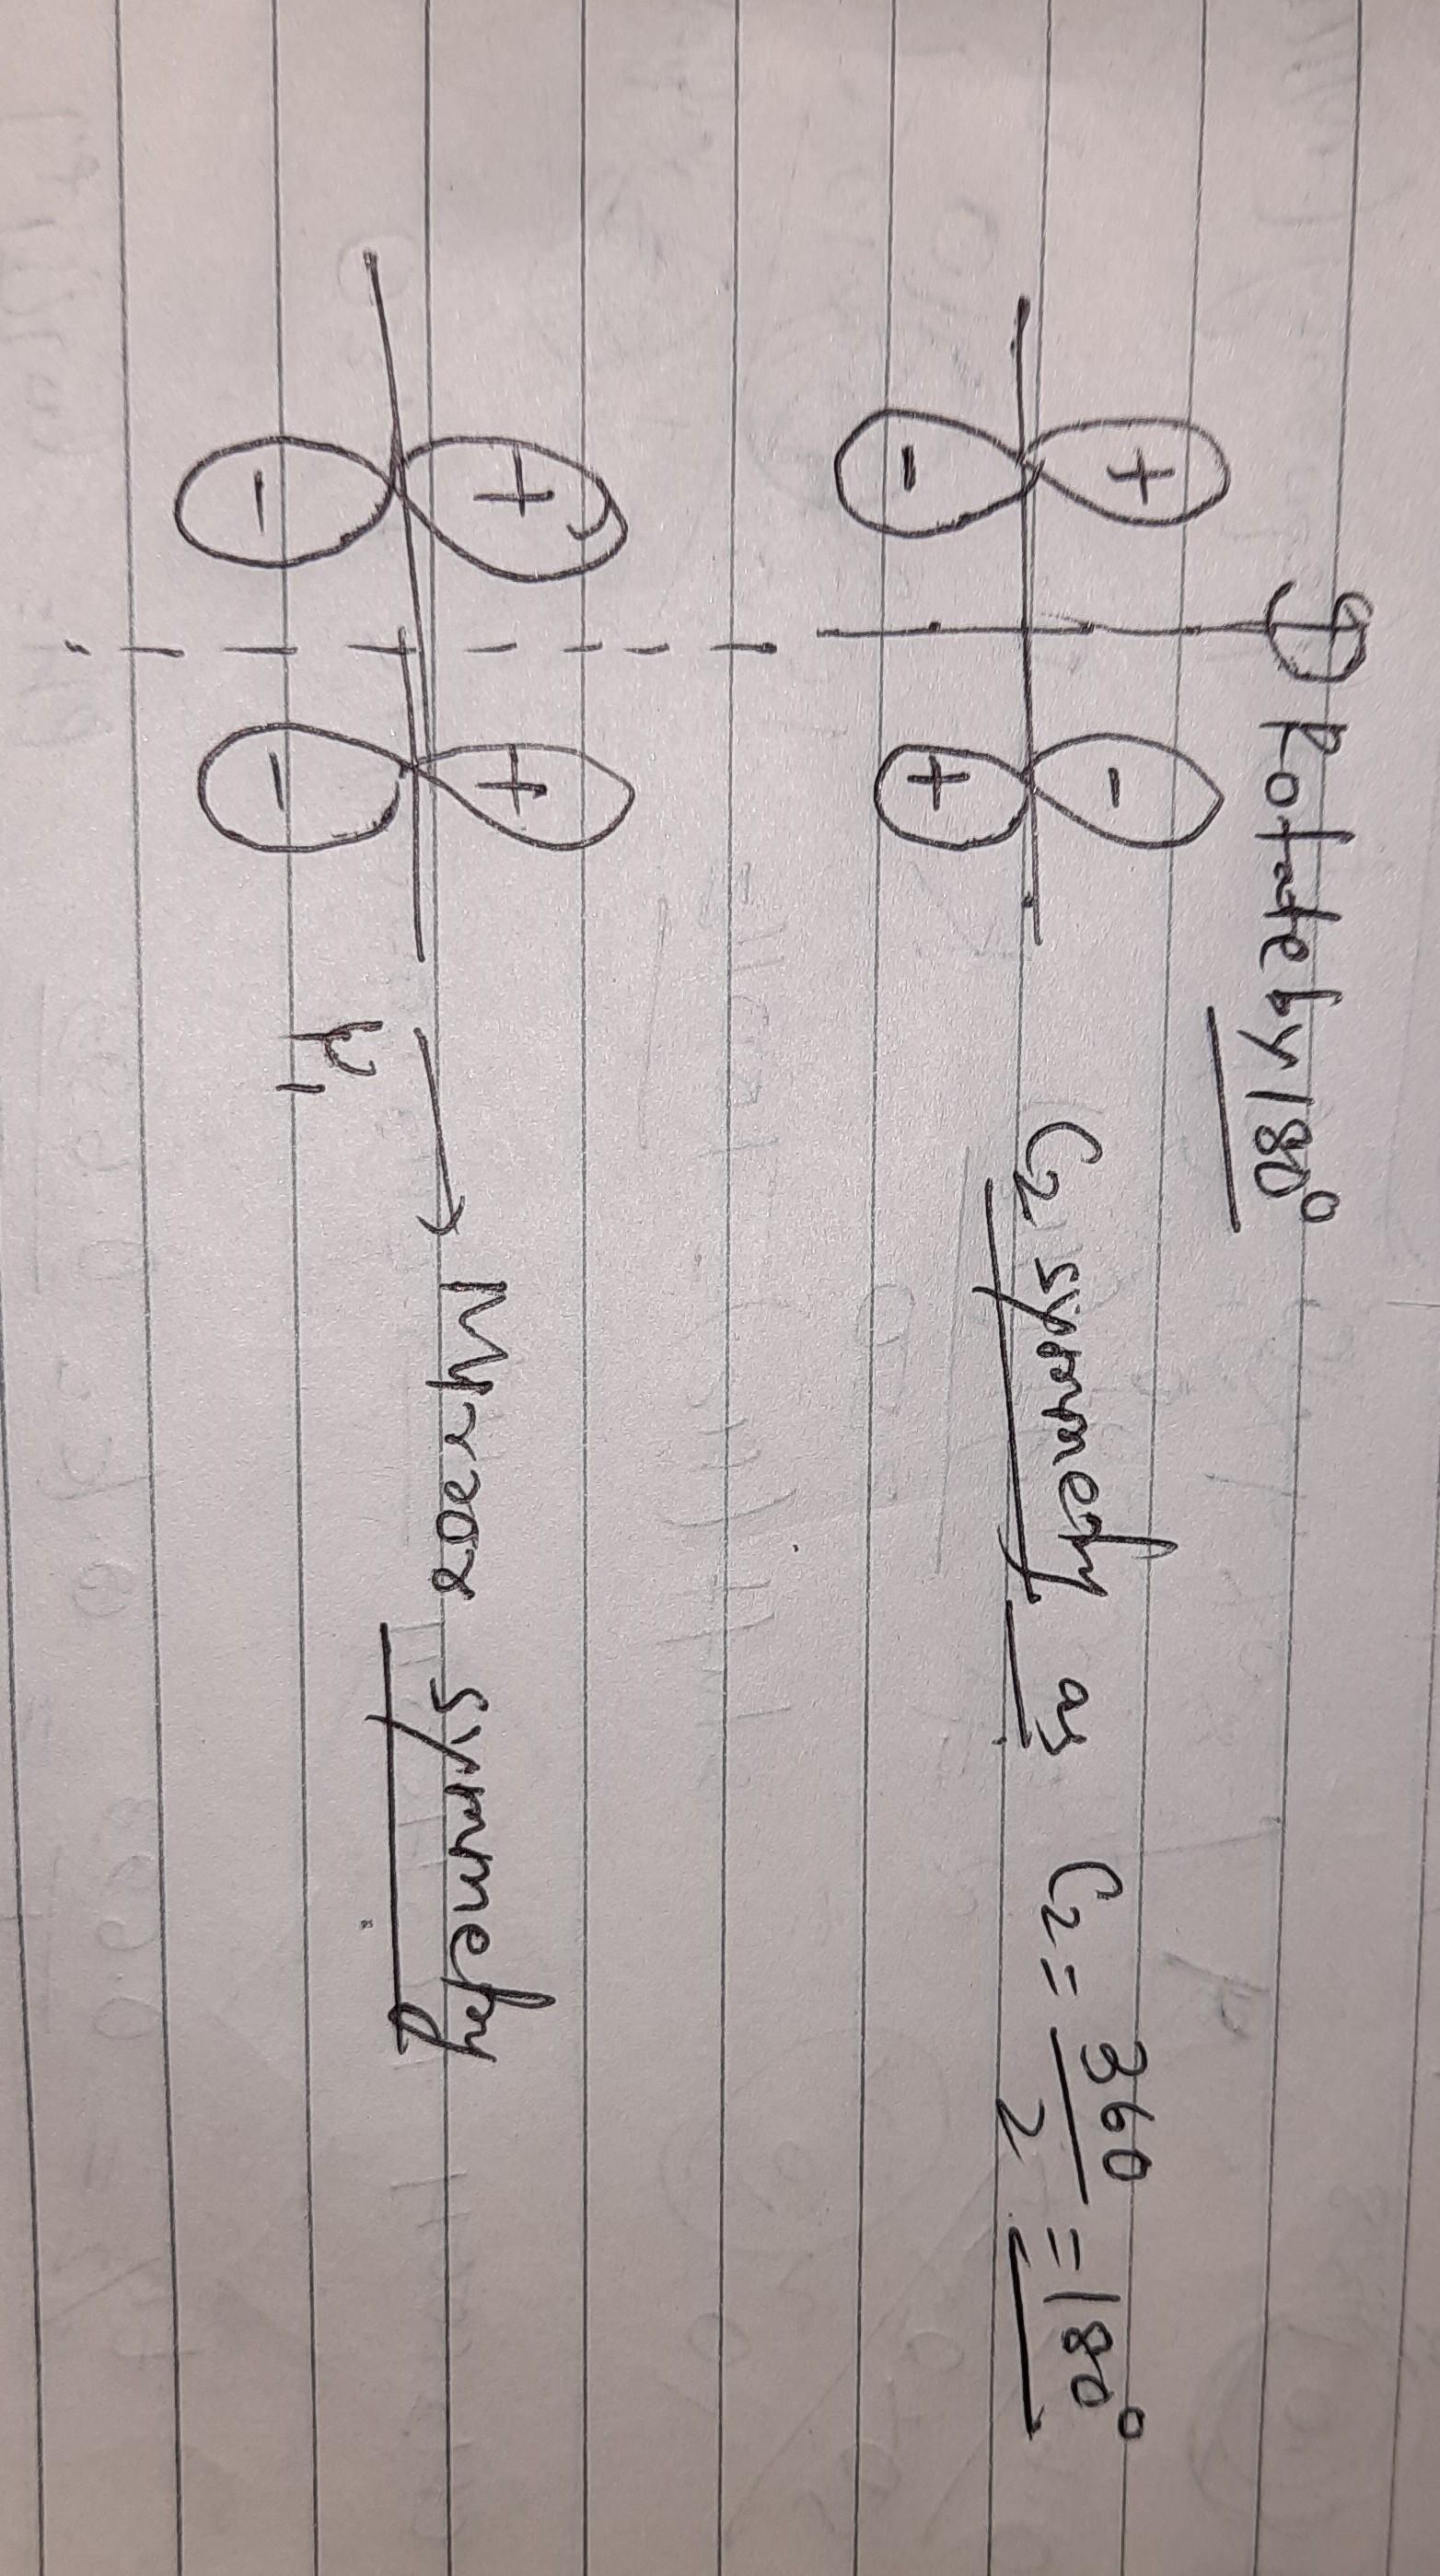 Rotate by 180°
+ -
- +
C2 symmetry as C2 = 360/2 = 180°
+ +
- -
→ Mirror symmetry
Ψ1